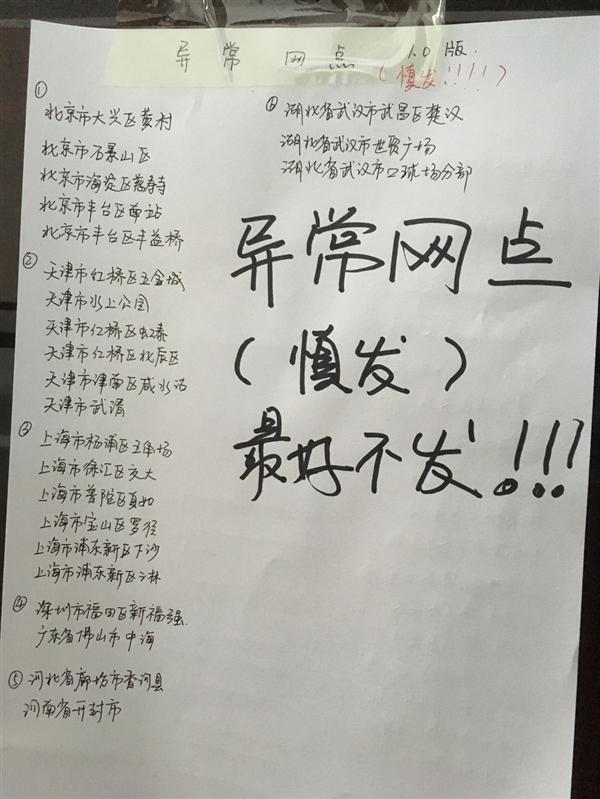 异常网点 1.0版.
(慎发!!!!)
①
北京市大兴区黄村
北京市石景山区
北京市海淀区慈寿寺
北京市丰台区南站
北京市丰台区丰益桥
② 天津市红桥区五金城
天津市水上公园
天津市红桥区虹泰
天津市红桥区北辰区
天津市津南区咸水沽
天津市武清
③ 上海市杨浦区五角场
上海市徐汇区交大
上海市普陀区真如
上海市宝山区罗泾
上海市浦东新区下沙
上海市浦东新区三林
④ 深圳市福田区新福强
广东省佛山市中海
⑤ 河北省廊坊市香河县
河南省开封市
⑥ 湖北省武汉市武昌区楚汉
湖北省武汉市世贸广场
湖北省武汉市口球场分部
异常网点
(慎发)
最好不发!!!